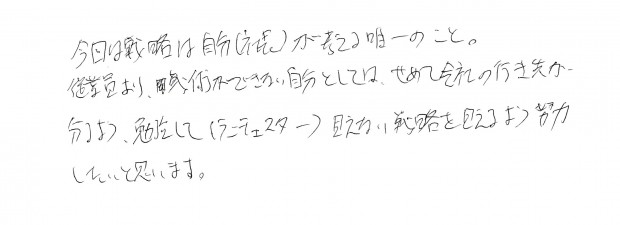 今回は戦略は自分(社長)が考える唯一のこと。
従業員より、戦術ができない自分としては、せめて会社の行き先が
分るよう、勉強して(ランチェスター)見えない戦略を見えるよう努力
したいと思います。